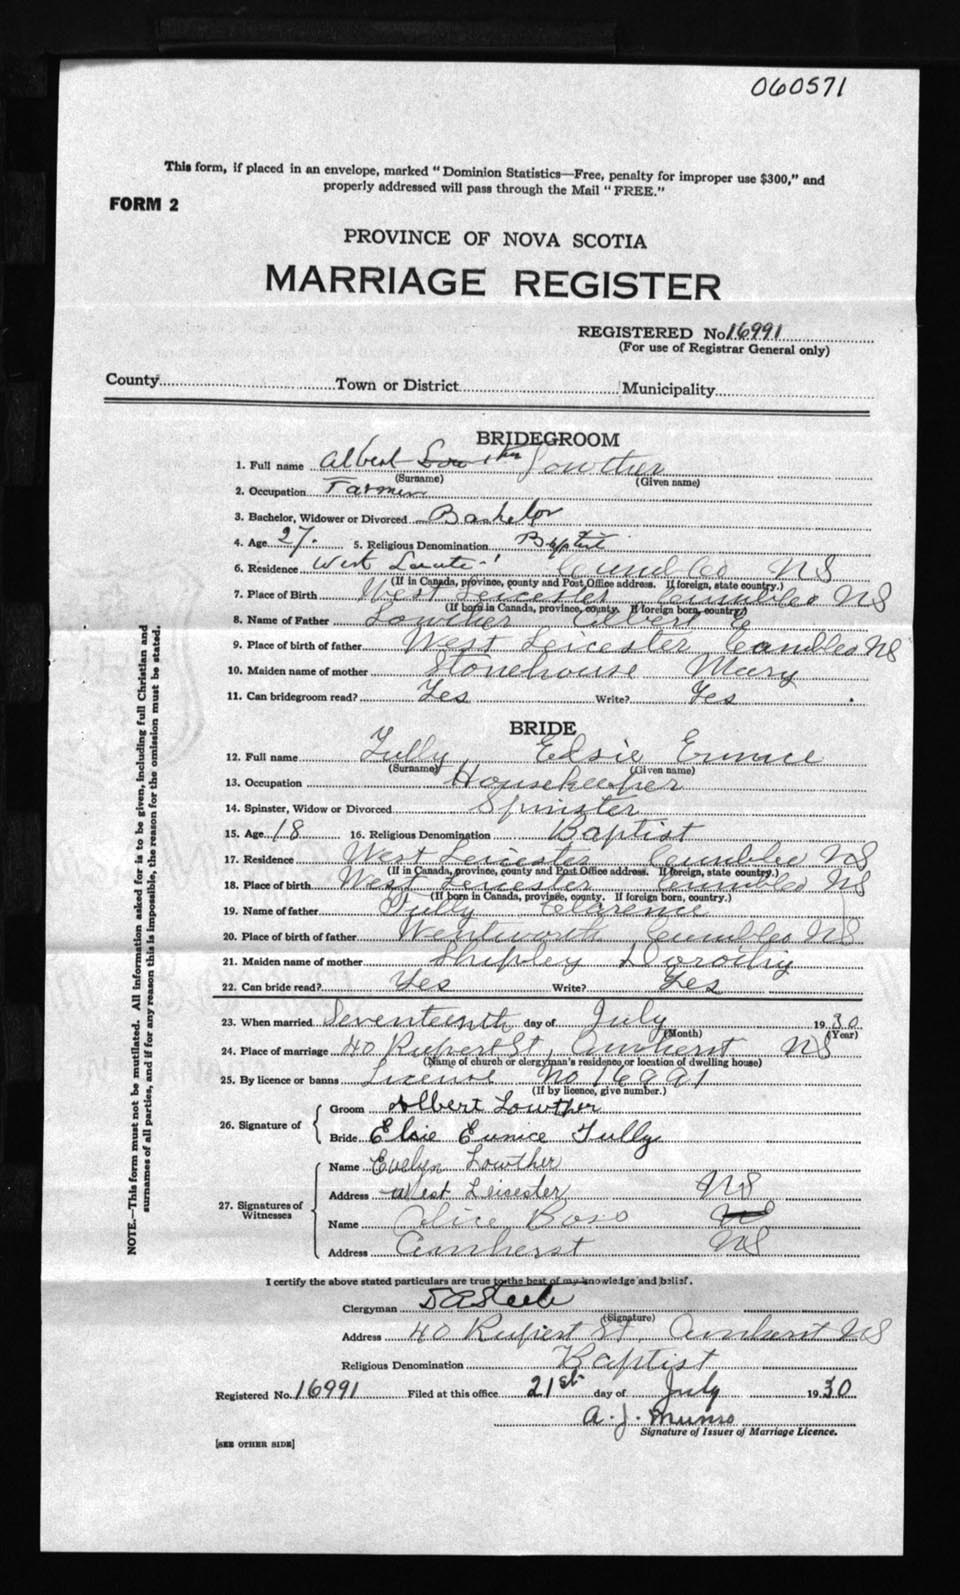 060571
This form, if placed in an envelope, marked "Dominion Statistics—Free, penalty for improper use $300," and
properly addressed will pass through the Mail "FREE."
FORM 2
PROVINCE OF NOVA SCOTIA
MARRIAGE REGISTER
REGISTERED No. 16991
(For use of Registrar General only)
County Town or District Municipality
BRIDEGROOM
1. Full name Albert Lowther Lowther
(Surname) (Given name)
2. Occupation Farmer
3. Bachelor, Widower or Divorced Bachelor
4. Age 27. 5. Religious Denomination Baptist
6. Residence West Cumbleo NS
(If in Canada, province, county and Post Office address. If foreign, state country.)
7. Place of Birth West Leicester Cumbleo NS
(If born in Canada, province, county. If foreign born, country)
8. Name of Father Lowther Albert E
9. Place of birth of father West Leicester Cumbleo NS
10. Maiden name of mother Stonehouse Mary
11. Can bridegroom read? Yes Write? Yes
BRIDE
12. Full name Tully Elsie Eunice
(Surname) (Given name)
13. Occupation Housekeeper
14. Spinster, Widow or Divorced Spinster
15. Age 18 16. Religious Denomination Baptist
17. Residence West Leicester Cumbleo NS
(If in Canada, province, county and Post Office address. If foreign, state country.)
18. Place of birth West Leicester Cumbleo NS
(If born in Canada, province, county. If foreign born, country.)
19. Name of father Tully Clarence
20. Place of birth of father Wentworth Cumbleo NS
21. Maiden name of mother Shipley Dorothy
22. Can bride read? Yes Write? Yes
23. When married Seventeenth day of July 1930
(Month) (Year)
24. Place of marriage 40 Rupert St, Amherst NS
(Name of church or clergyman's residence or location of dwelling house)
25. By licence or banns License No 16991
(If by licence, give number.)
26. Signature of
Groom Albert Lowther
Bride Elsie Eunice Tully
27. Signatures of Witnesses
Name Evelyn Lowther
Address West Leisester NS
Name Alice Boss NS
Address Amherst NS
I certify the above stated particulars are true to the best of my knowledge and belief.
Clergyman D A Steele
(Signature)
Address 40 Rupert St, Amherst NS
Religious Denomination Baptist
Registered No. 16991 Filed at this office 21st day of July 1930
A. J. Munro
Signature of Issuer of Marriage Licence.
[SEE OTHER SIDE]
NOTE.—This form must not be mutilated. All information asked for is to be given, including full Christian and
surnames of all parties, and if for any reason this is impossible, the reason for the omission must be stated.